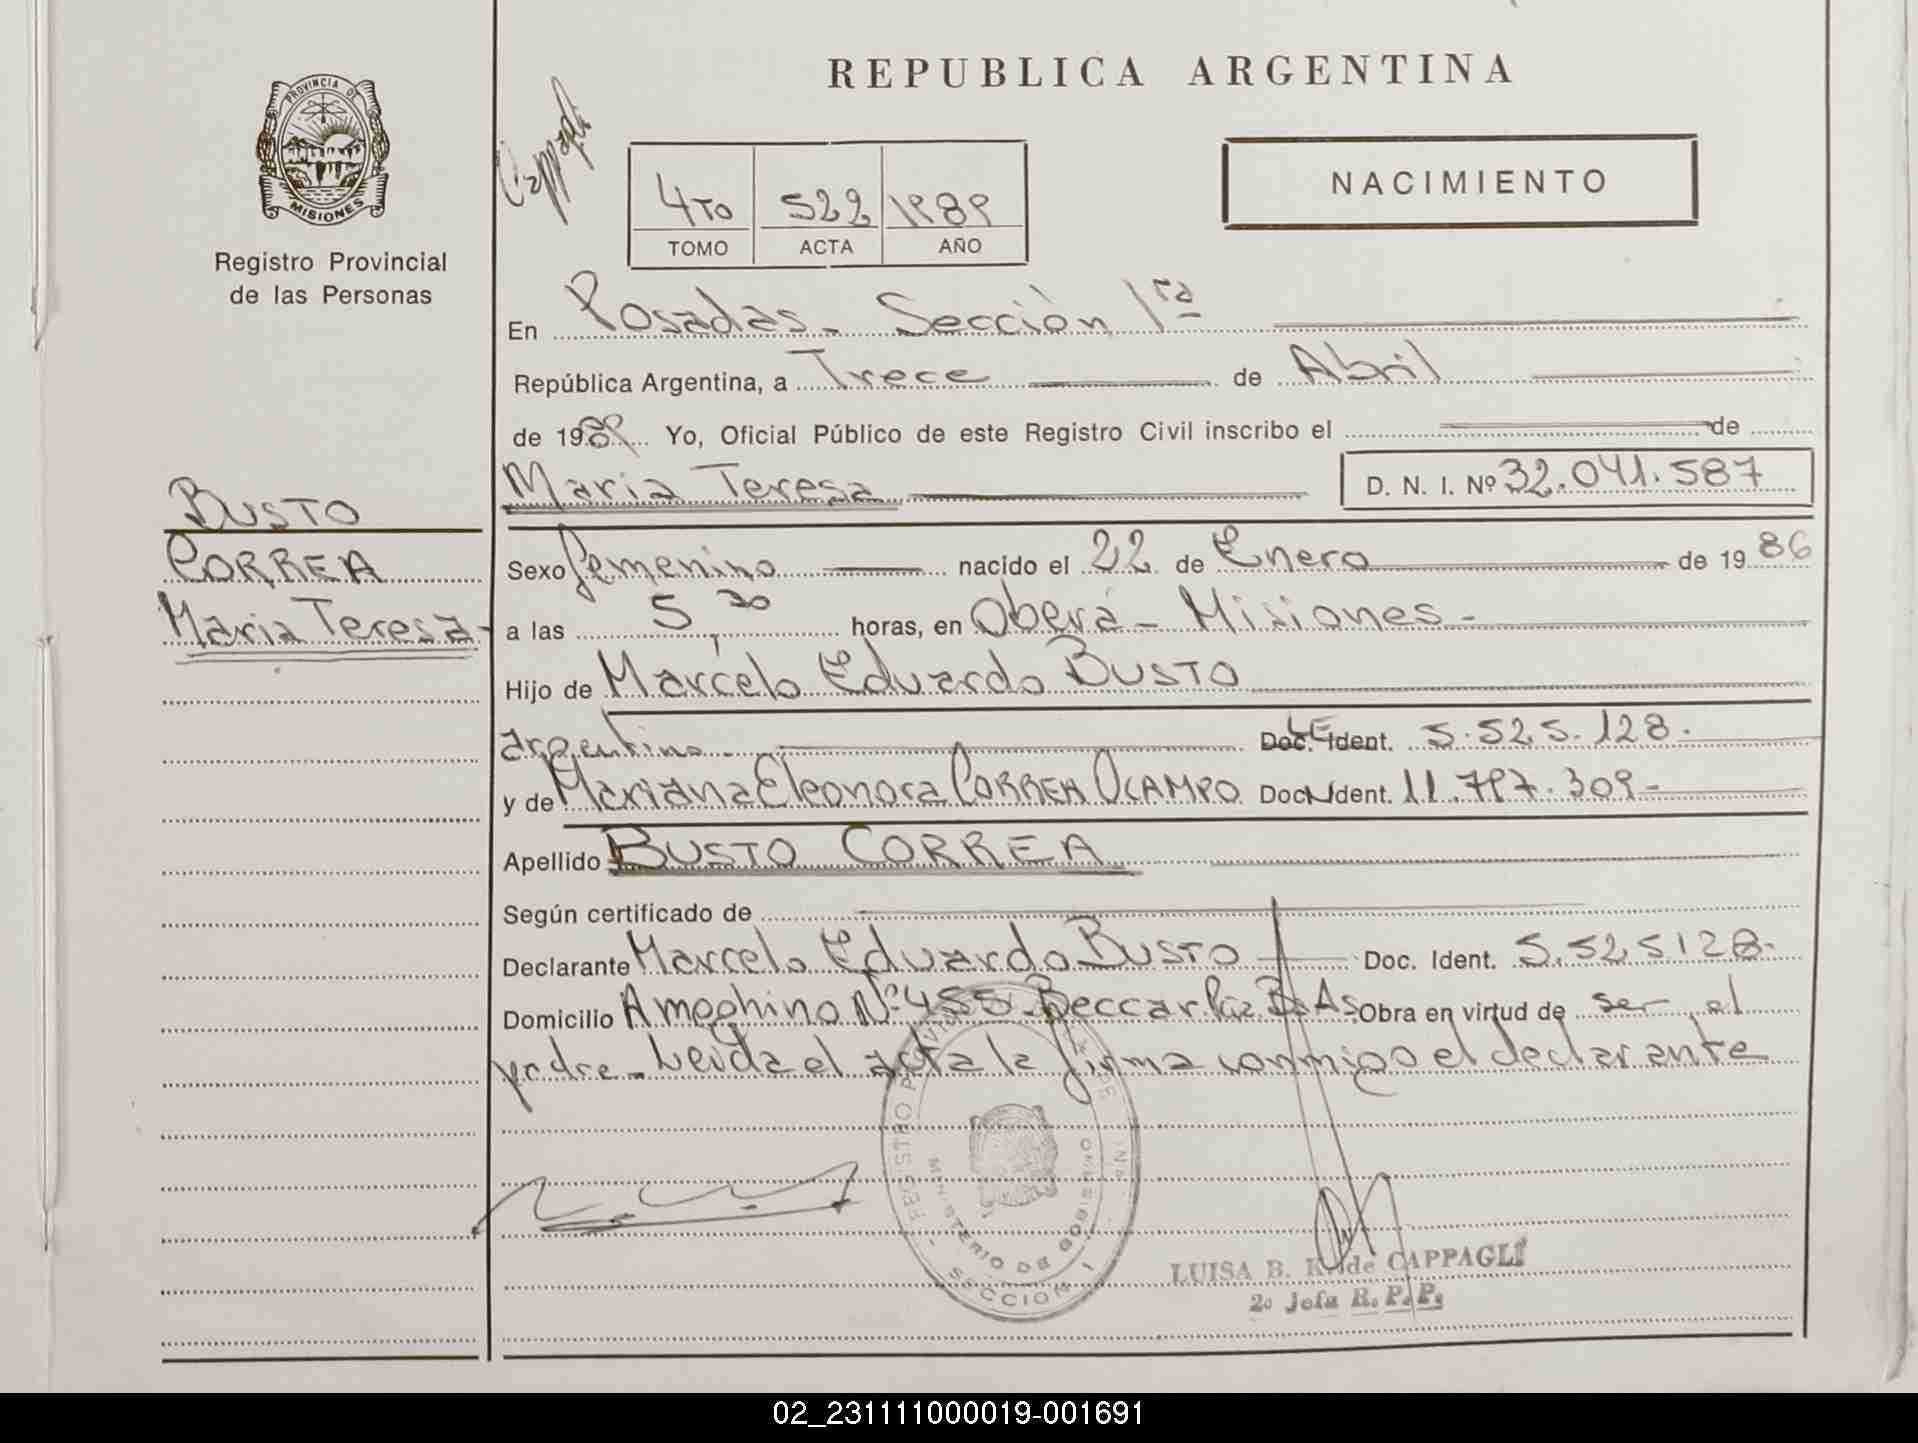 PROVINCIA DE
MISIONES
Registro Provincial
de las Personas
BUSTO
CORREA
Maria Teresa
REPUBLICA ARGENTINA
4to 522 1989
TOMO ACTA AÑO
NACIMIENTO
En Posadas - Sección 1ra
República Argentina, a Trece de Abril
de 1989 Yo, Oficial Público de este Registro Civil inscribo el de
Maria Teresa D. N. I. Nº 32.041.587
Sexo femenino nacido el 22 de Enero de 1986
a las 5,30 horas, en Oberá - Misiones -
Hijo de Marcelo Eduardo BUSTO
argentino - LE Doc. Ident. 5.525.128.
y de Mariana Eleonora CORREA OCAMPO Doc. Ident. 11.797.309 -
Apellido BUSTO CORREA
Según certificado de
Declarante Marcelo Eduardo BUSTO Doc. Ident. 5.525128-
Domicilio Ameghino Nº 455 - Beccar Bs As Obra en virtud de ser el
padre - Leida el acta la firma conmigo el declarante
MINISTERIO DE GOBIERNO
SECCION 1
LUISA B. K. de CAPPAGLI
2º Jefa R. P. P.
02_231111000019-001691